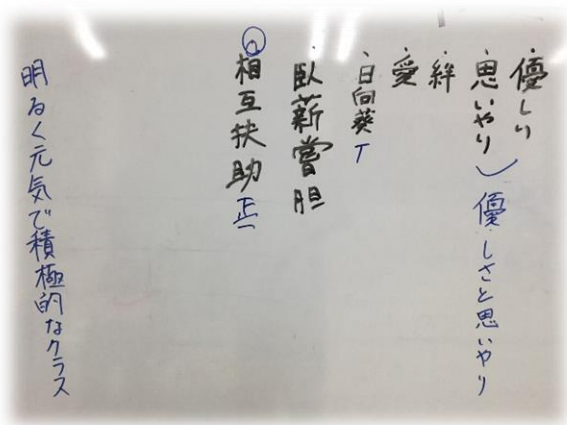 ・優しり
・思いやり 優しさと思いやり
・絆
・愛
・日向葵 T
・臥薪嘗胆
相互扶助 正一
明るく元気で積極的なクラス